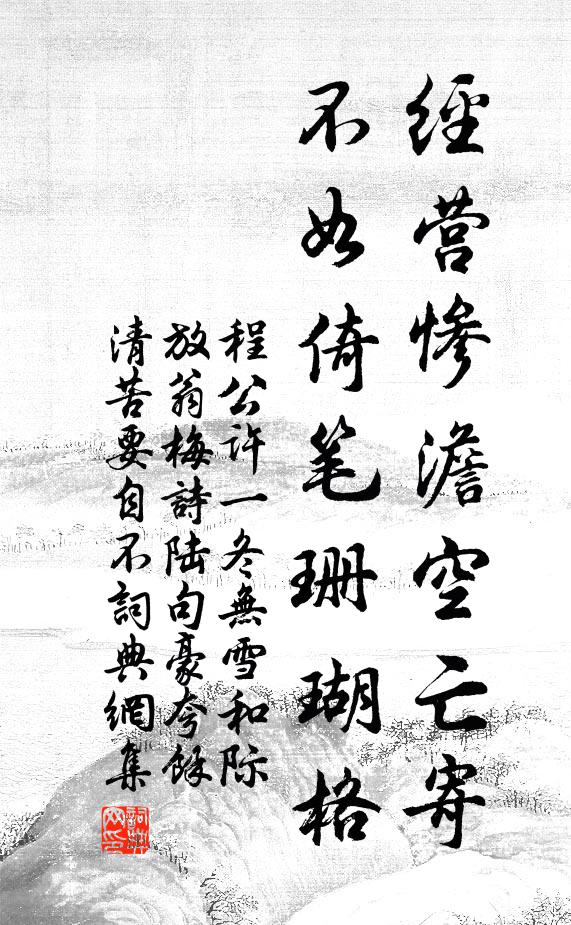 經营慘澹空亡寄
不如倚笔珊瑚格
程公许一冬無雪和际
放翁梅詩陆句豪夸餘
清苦要自不詞典網集